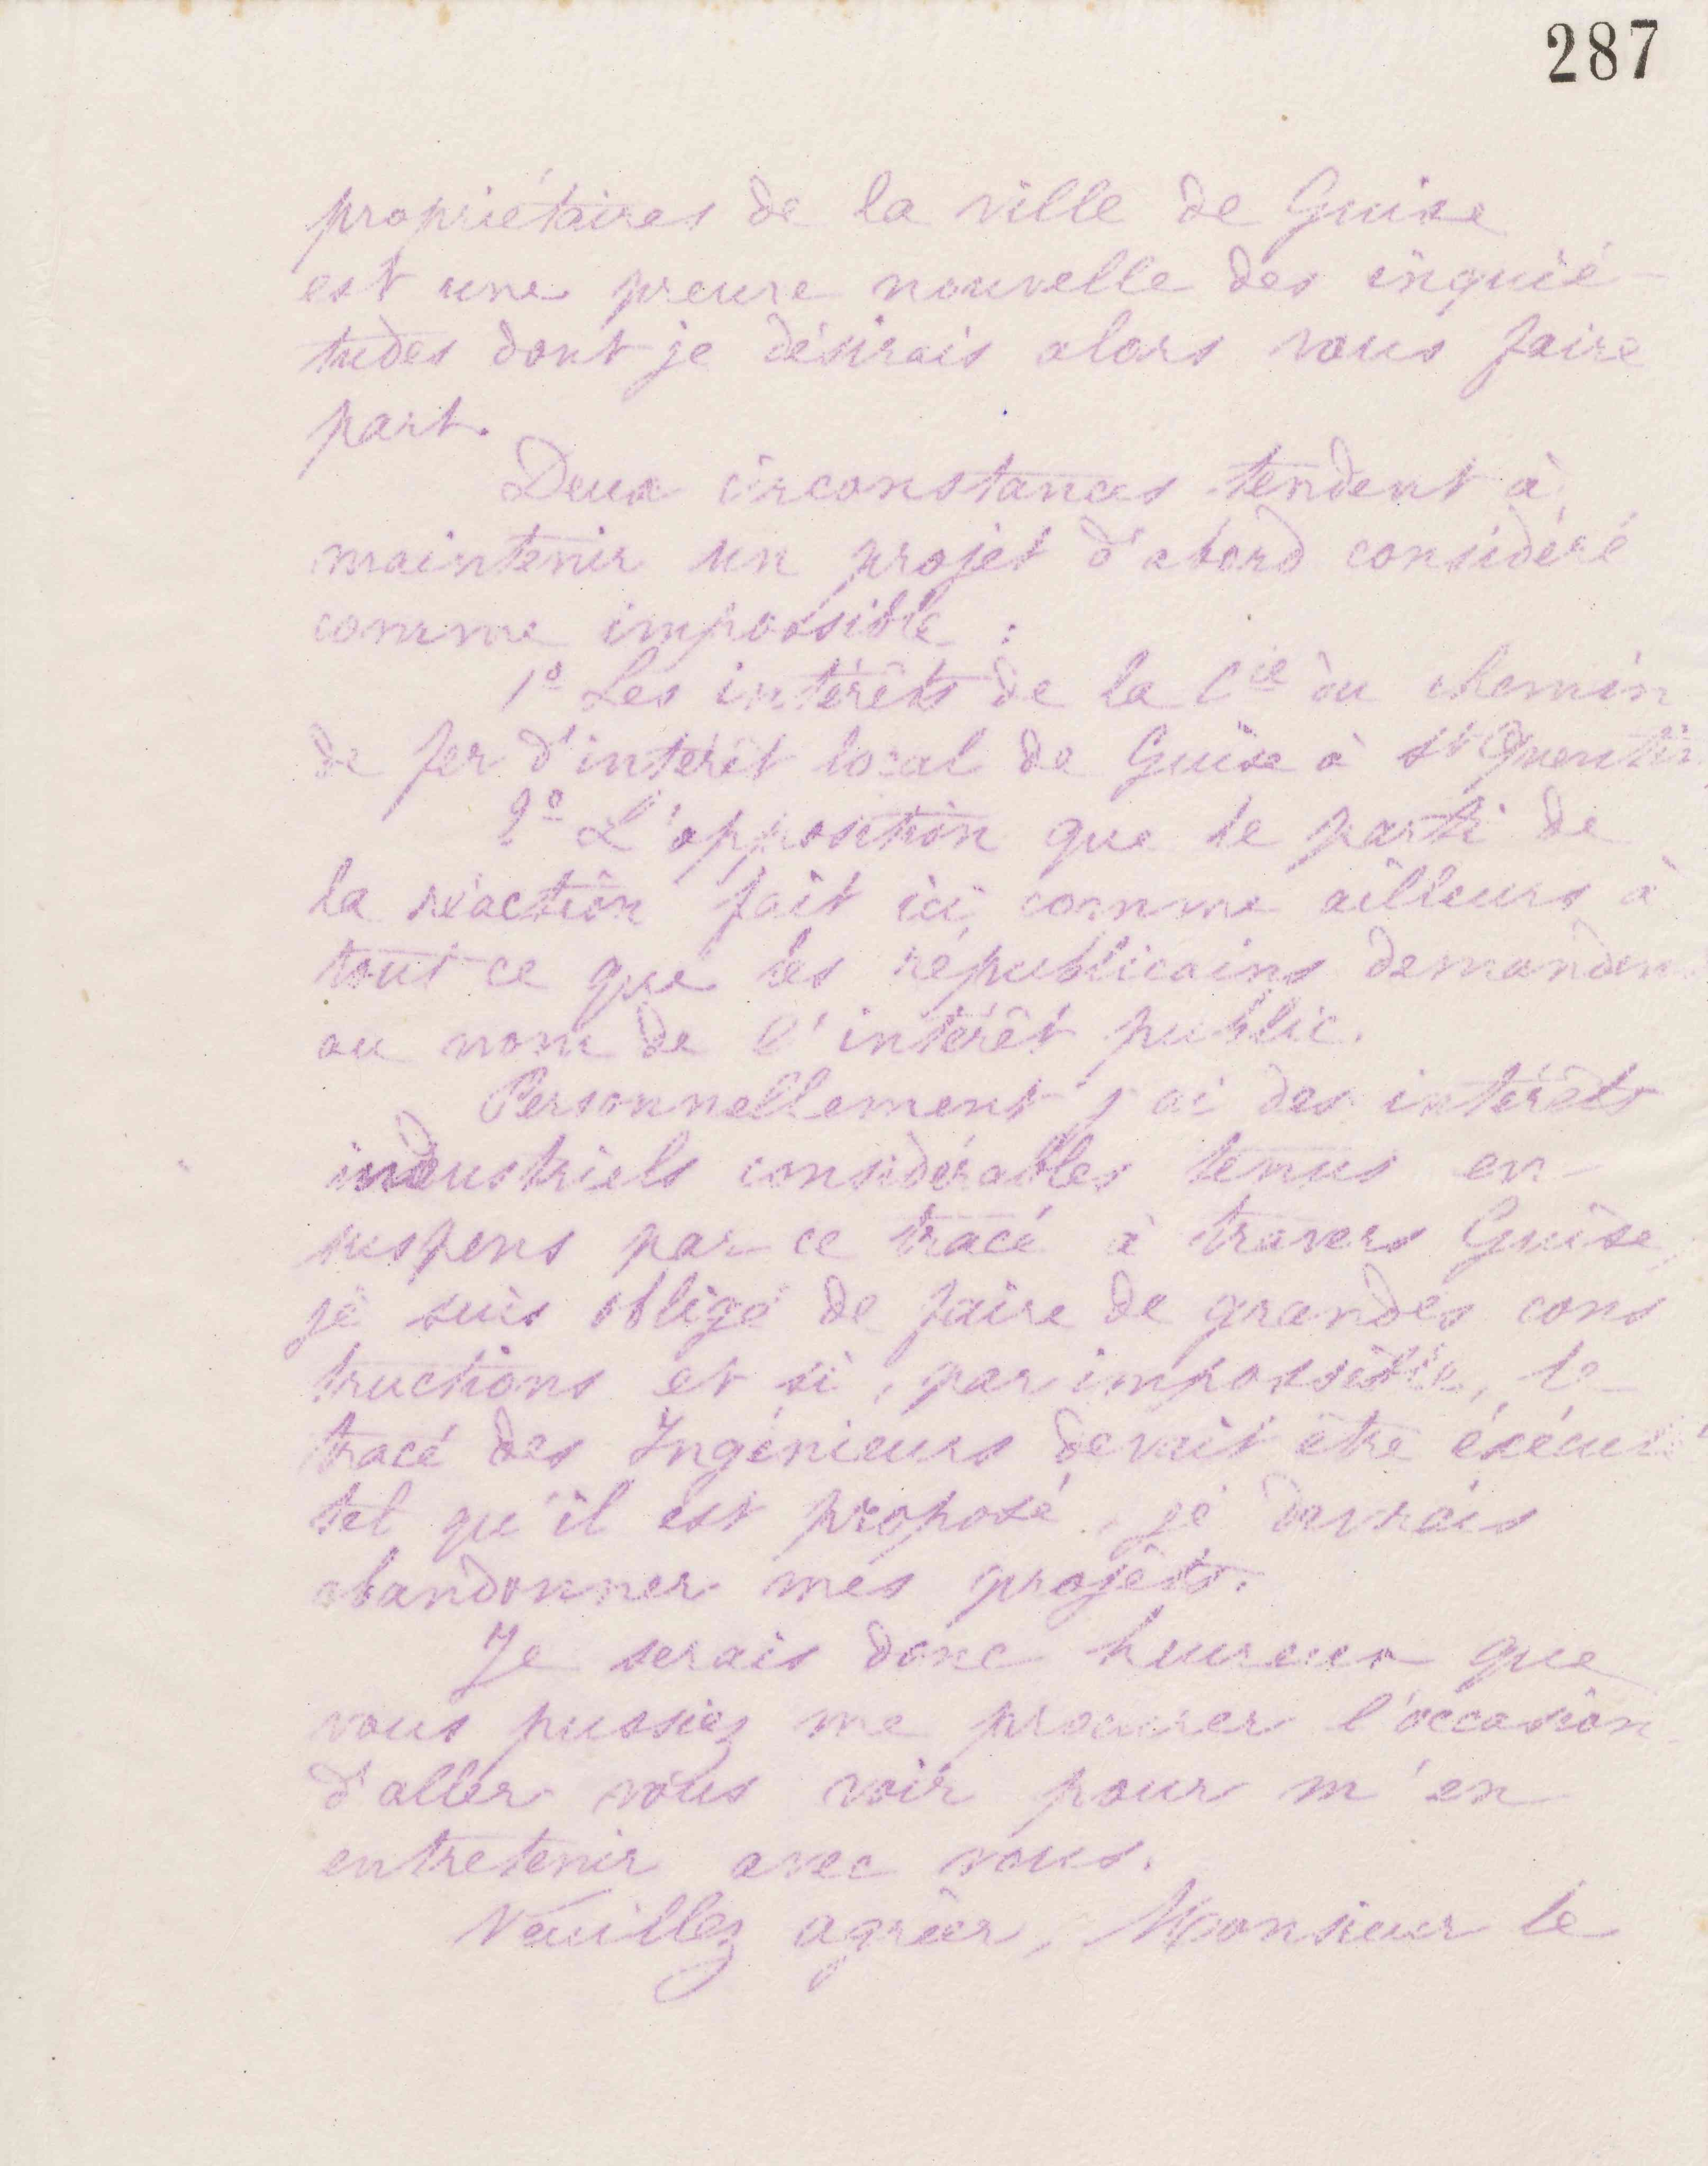 287
propriétaires de la ville de Guise
est une preuve nouvelle des inquié-
tudes dont je désirais alors vous faire
part.
Deux circonstances tendent à
maintenir un projet d'abord considéré
comme impossible :
1º Les intérêts de la Cie du chemin
de fer d'intérêt local de Guise à St Quentin
2º L'opposition que le parti de
la réaction fait ici, comme ailleurs à
tout ce que les républicains demanden
au nom de l'intérêt public.
Personnellement j'ai des intérêts
industriels considérables tenus en
suspens par ce tracé à travers Guise,
je suis obligé de faire de grandes cons
tructions et si, par impossible, le
tracé des Ingénieurs devait être exécuté
tel qu'il est proposé, je devrais
abandonner mes projets.
Je serais donc heureux que
vous pussiez me procurer l'occasion
d'aller vous voir pour m'en
entretenir avec vous.
Veuillez agréer, Monsieur le